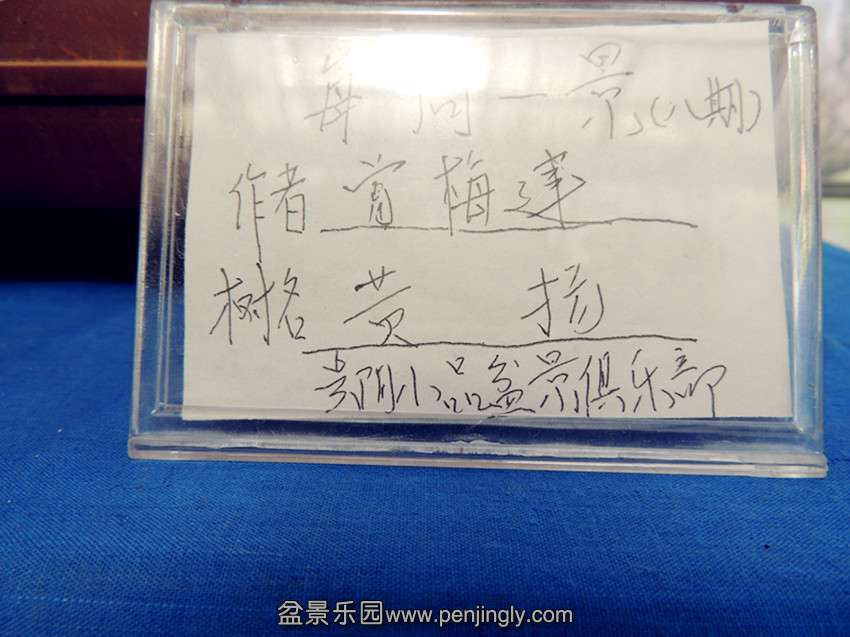 每 周 一 景(八期)
作者 梅
树名 黄 扬
贵阳小品盆景俱乐部
盆景乐园www.penjingly.com